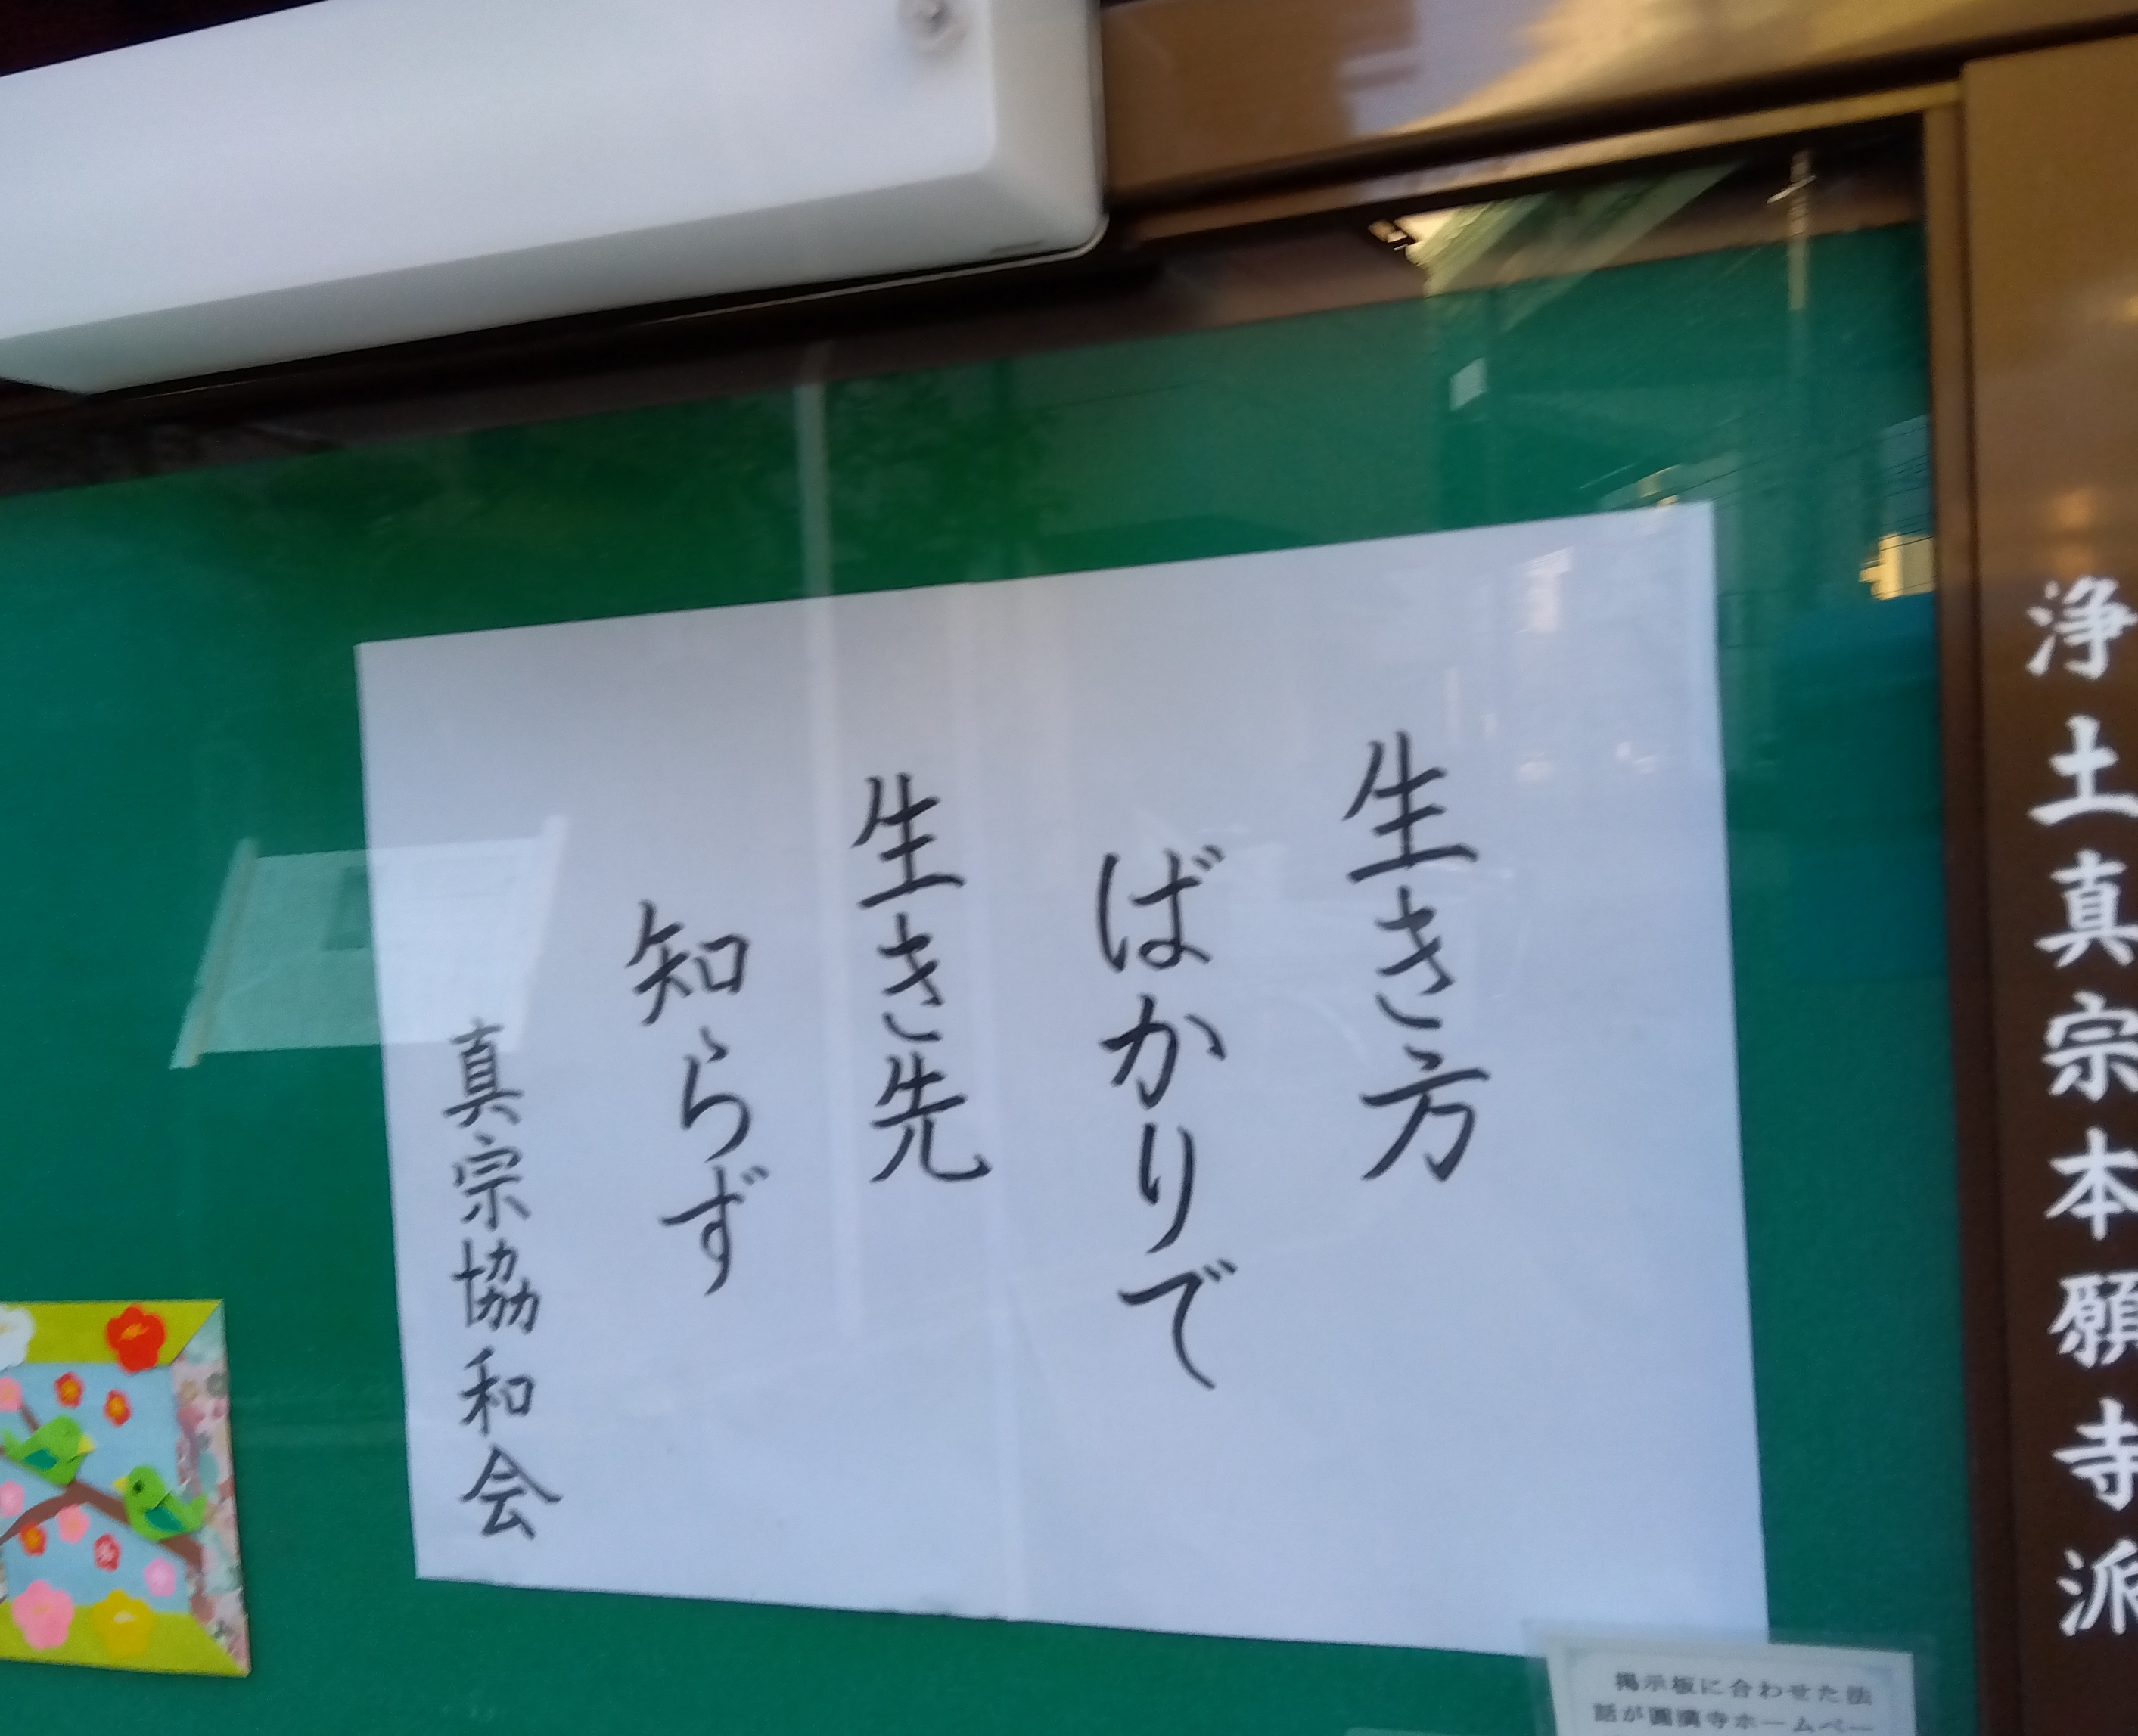 浄土真宗本願寺派
生き方
ばかりで
生き先
知らず
真宗協和会
掲示板に合わせた法
話が圓満寺ホームペー